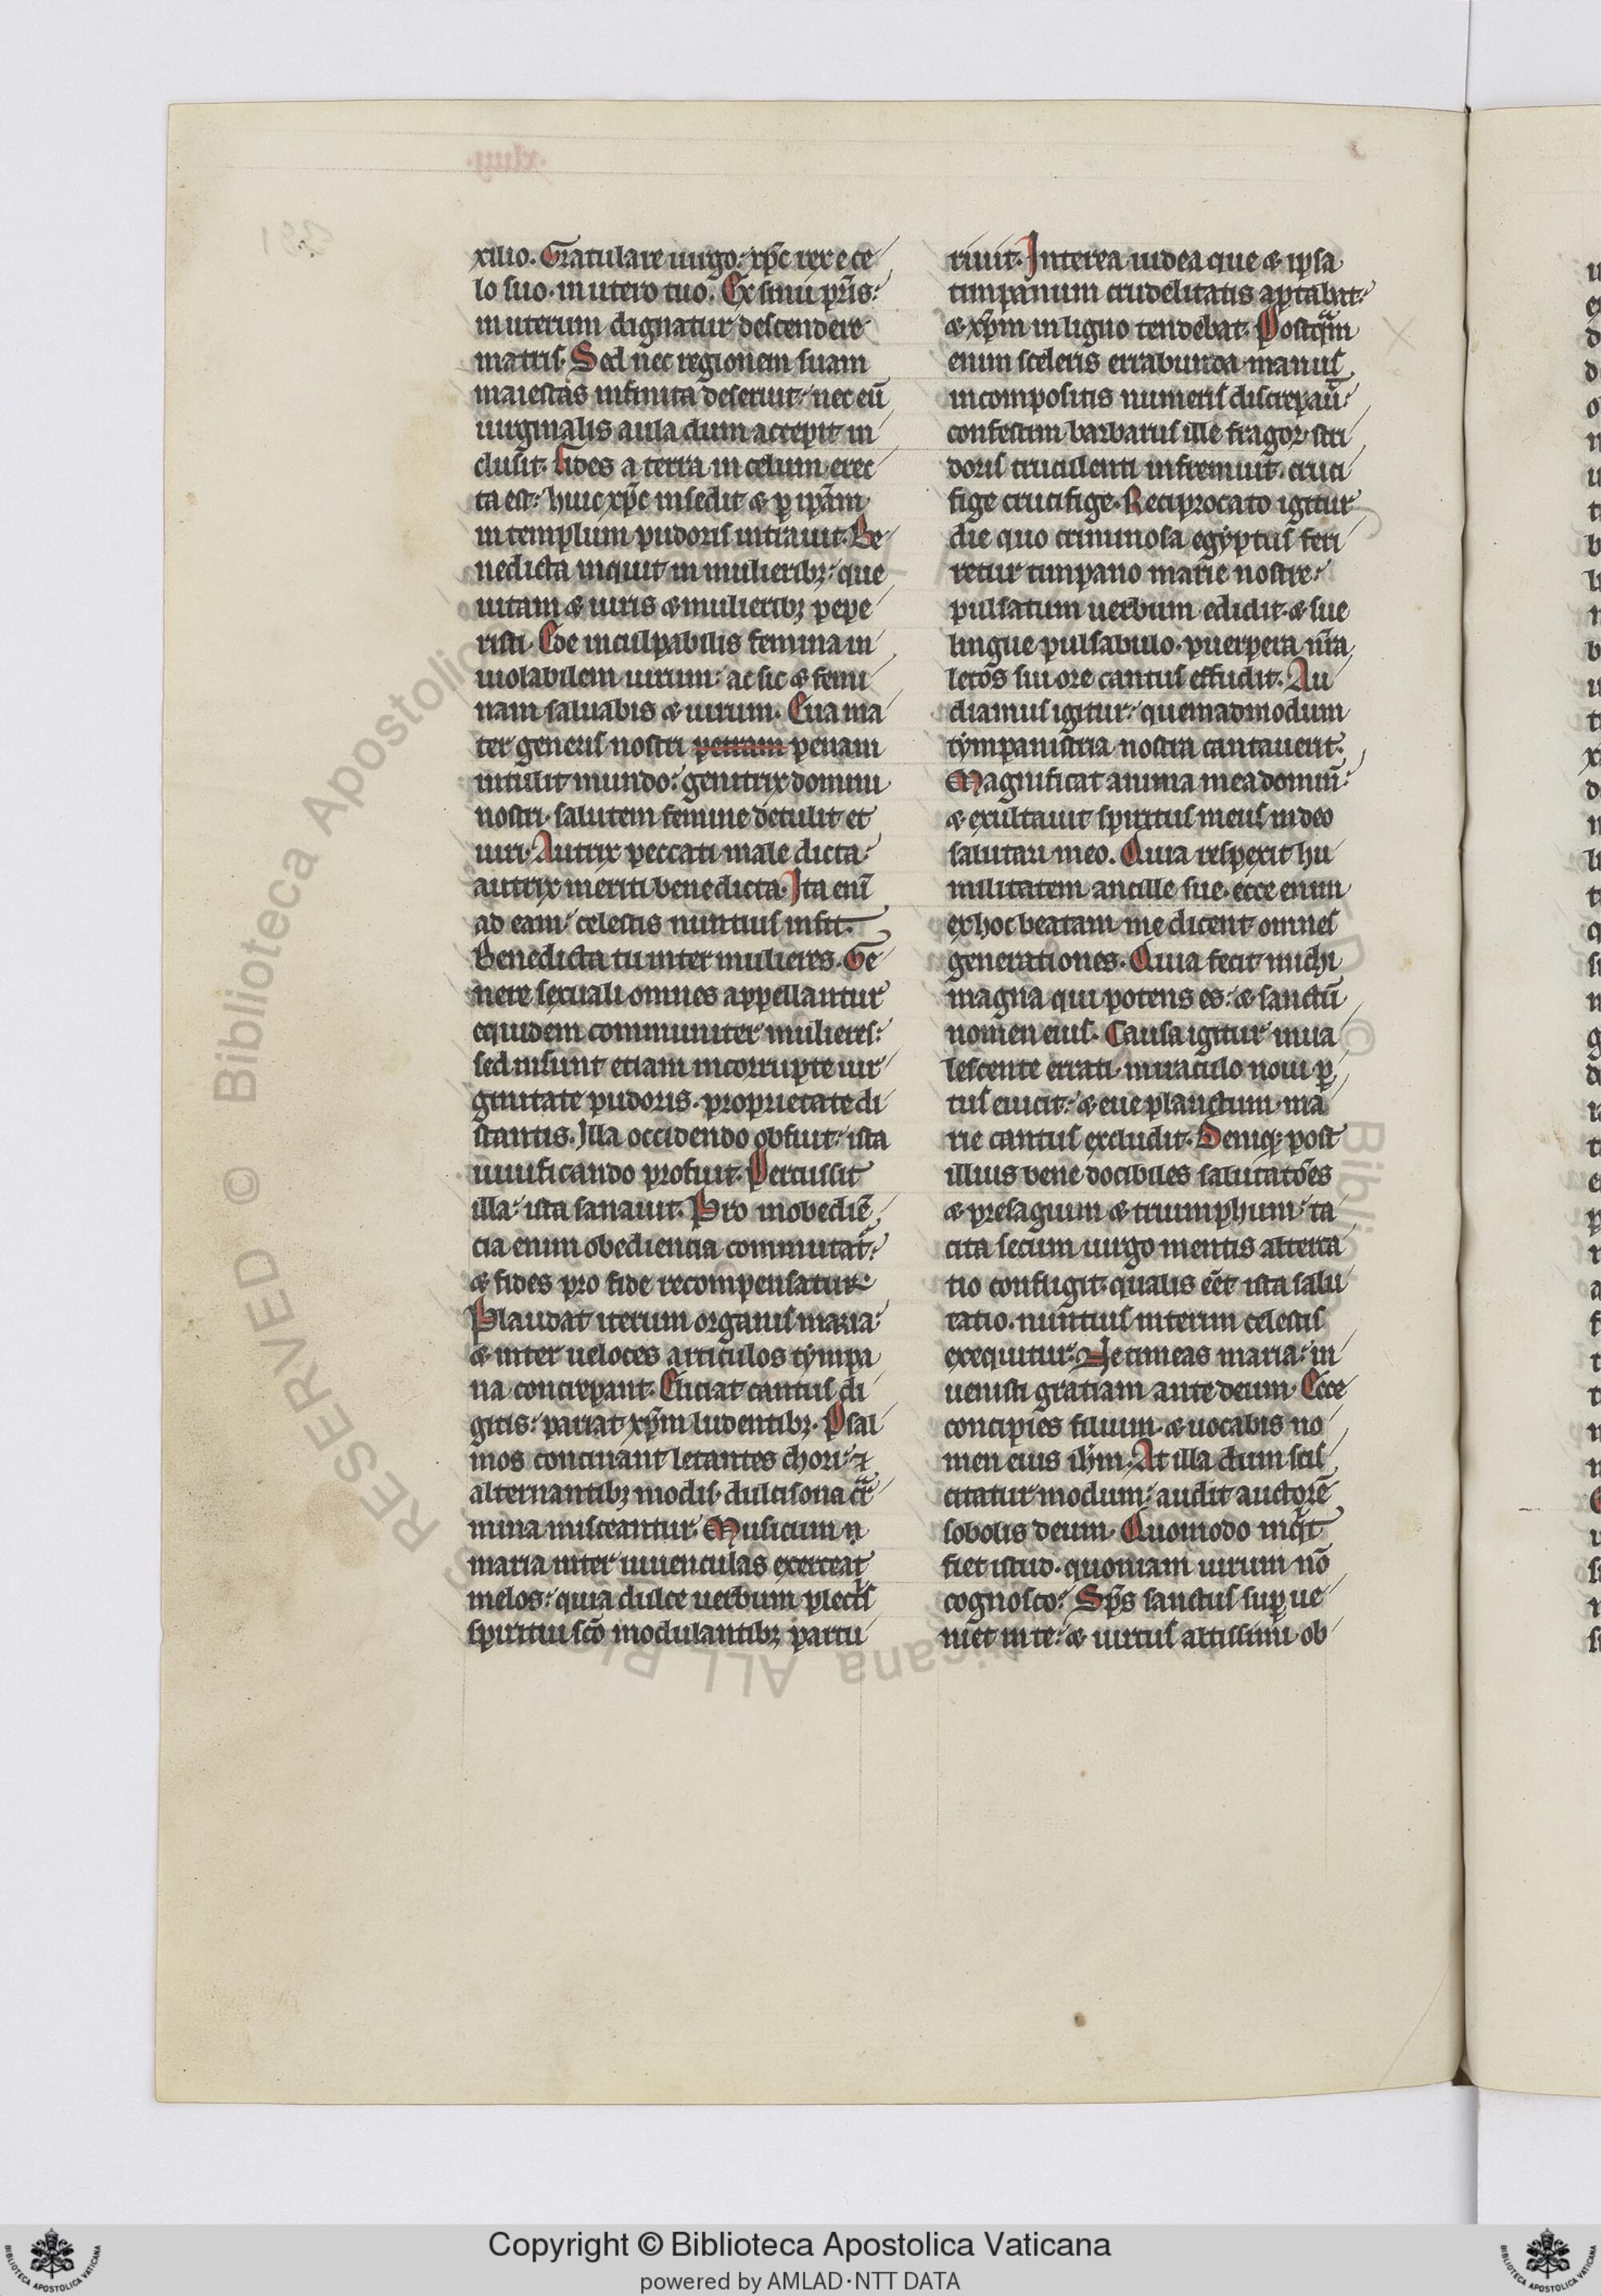 xilio. Gratulare uirgo: xp̄c rex e ce
lo suo in utero tuo. Ex sinu pr̄is:
in uterum dignatur descendere
matris. Sed nec regionem suam
maiestas infinita deseruit: nec eū
uirginalis aula cum accepit in
clusit. Fides a terra in celum erec
ta est: huic xp̄c insedit & ꝑ ip̄am
in templum pudoris intrauit. Be
nedicta inquit in mulieribꝫ: que
uitam & uiris & mulieribꝫ pepe
risti. Coe inculpabilis femina in
uiolabilem uirum: ac sic & femi
nam saluabis & uirum. Eua ma
ter generis nostri petram penam
intulit mundo: genitrix domini
nostri salutem femine detulit et
uiri. Autrix peccati male dicta:
autrix meriti benedicta. Ita enī
ad eam celestis nuntius infit.
Benedicta tu inter mulieres. Ge
nere sexuali omnes appellantur
equidem communiter mulieres:
sed insunt etiam incorrupte uir
ginitate pudoris proprietate di
stantis. Illa occidendo obfuit: ista
uiuificando profuit. Percussit
illa: ista sanauit. Pro inobediē
cia enim obediencia commutat̄:
& fides pro fide recompensatur
Plaudat iterum organis maria:
& inter ueloces articulos tympa
na concrepant. Eliciat cantus di
gitis: pariat xp̄m ludentibꝫ. Psal
mos concinant letantes chori: ⁊
alternantibꝫ modis dulcisona cᷓ
mina misceantur. Musicum n̄
maria inter iuuenculas exerceat
melos: quia dulce uerbum plectͥs
spiritui sc̄o modulantibꝫ partu
riuit. Interea iudea que & ipsa
timpanum crudelitatis aptabat:
& xp̄m in ligno tendebat. Postqᷓm
enim sceleris errabunda manus
incompositis numeris discrepau̅:
confestim barbarus ille fragor stri
doris truculenti infremuit. cruci
fige crucifige. Reciprocato igitur
die quo criminosa egyptus feri
retur timpano marie nostre:
pulsatum uerbum edidit. & sue
lingue pulsabulo puerpera nr̄a
letōs sui ore cantus effudit. Au
diamus igitur: quemadmodum
tympanistria nostra cantauerit.
Magnificat anima mea dominū:
& exultauit spiritus meus in deo
salutari meo. Quia respexit hu
militatem ancille sue. ecce enim
ex hoc beatam me dicent omnes
generationes. Quia fecit michi
magna qui potens es: & sanctū
nomen eius. Causa igitur inua
lescente errati miraculo noui ꝑ
tus euicit: & eue planctum ma
rie cantus excludit. Deniqꝫ post
illius bene docibiles salutatōes
& presagium & triumphum ta
cita secum uirgo mentis alterca
tio confligit qualis eēt ista salu
tatio. nuntius interim celestis
exequitur. Ne timeas maria: in
uenisti gratiam ante deum. Ecce
concipies filium & uocabis no
men eius ihm̄. At illa dum scis
citatur modum: audit auctorē
sobolis deum. Quomodo inqͥt
fiet istud quoniam uirum nō
cognosco: Sp̄s sanctus suꝑ ue
niet in te: & uirtus altissimi ob
RESERVED © Biblioteca Apostolica
Copyright © Biblioteca Apostolica Vaticana
powered by AMLAD·NTT DATA